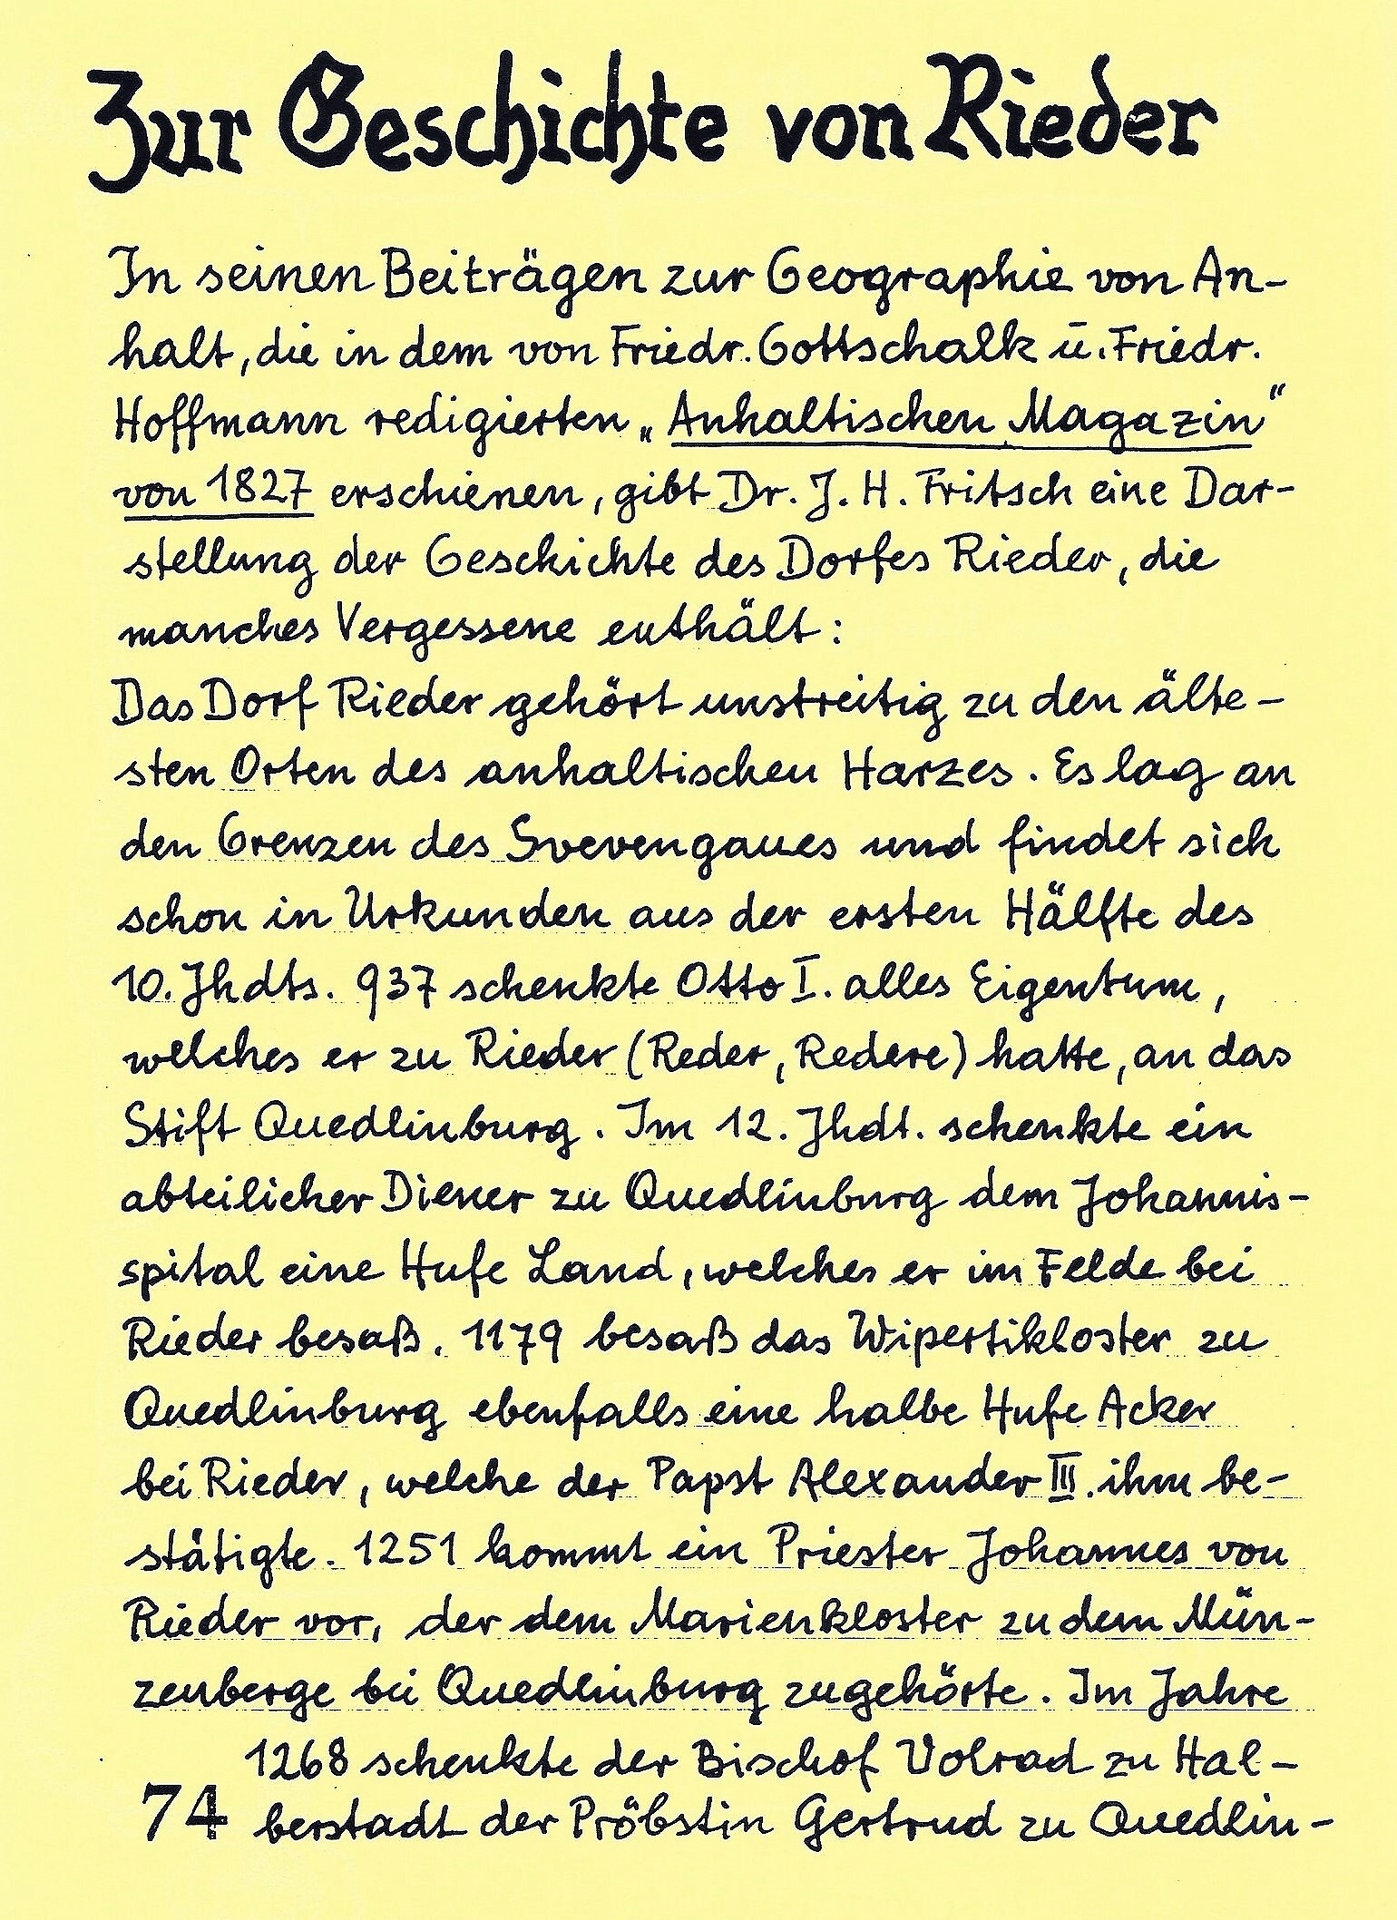 Zur Geschichte von Rieder
In seinen Beiträgen zur Geographie von An-
halt, die in dem von Friedr. Gottschalk ū. Friedr.
Hoffmann redigierten „Anhaltischen Magazin“
von 1827 erschienen, gibt Dr. J. H. Fritsch eine Dar-
stellung der Geschichte des Dorfes Rieder, die
manches Vergessene enthält:
Das Dorf Rieder gehört unstreitig zu den älte-
sten Orten des anhaltischen Harzes. Es lag an
den Grenzen des Svevengaues und findet sich
schon in Urkunden aus der ersten Hälfte des
10. Jhdts. 937 schenkte Otto I. alles Eigentum,
welches er zu Rieder (Reder, Redere) hatte, an das
Stift Quedlinburg. Im 12. Jhdt. schenkte ein
abteilicher Diener zu Quedlinburg dem Johannis-
spital eine Hufe Land, welches er im Felde bei
Rieder besaß. 1179 besaß das Wipertikloster zu
Quedlinburg ebenfalls eine halbe Hufe Acker
bei Rieder, welche der Papst Alexander III. ihm be-
stätigte. 1251 kommt ein Priester Johannes von
Rieder vor, der dem Marienkloster zu dem Mün-
zenberge bei Quedlinburg zugehörte. Im Jahre
1268 schenkte der Bischof Volrad zu Hal-
berstadt der Pröbstin Gertrud zu Quedlin-
74